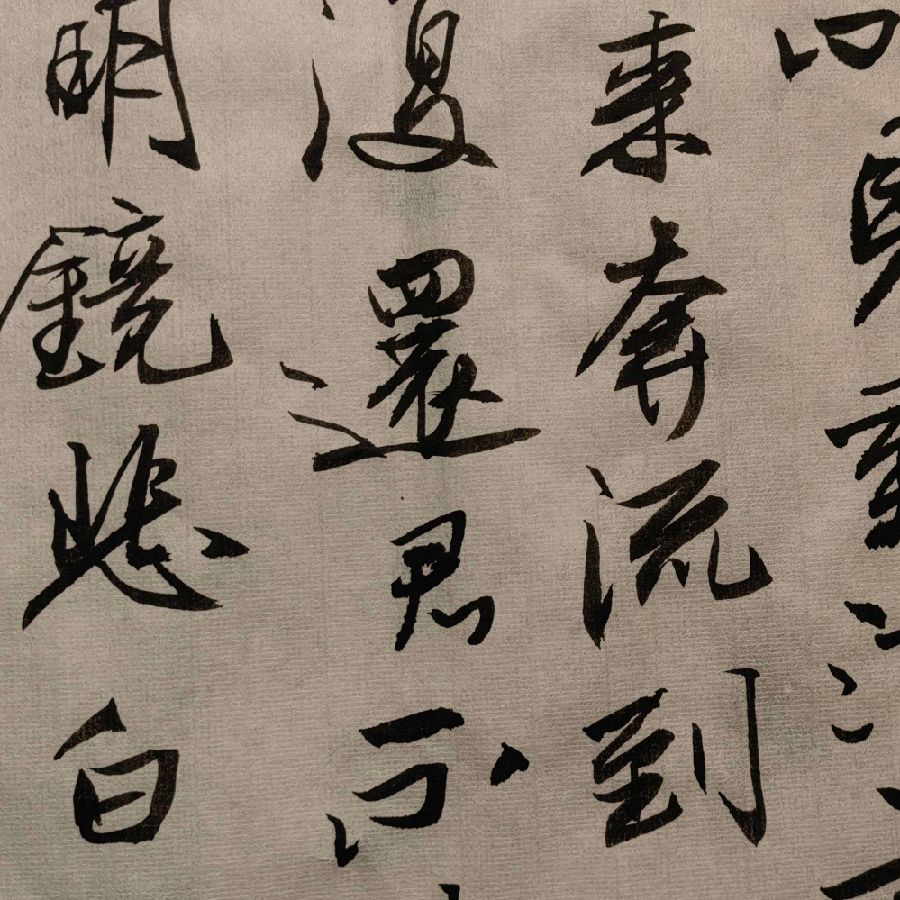 來奔流到
復還君不
明鏡悲白